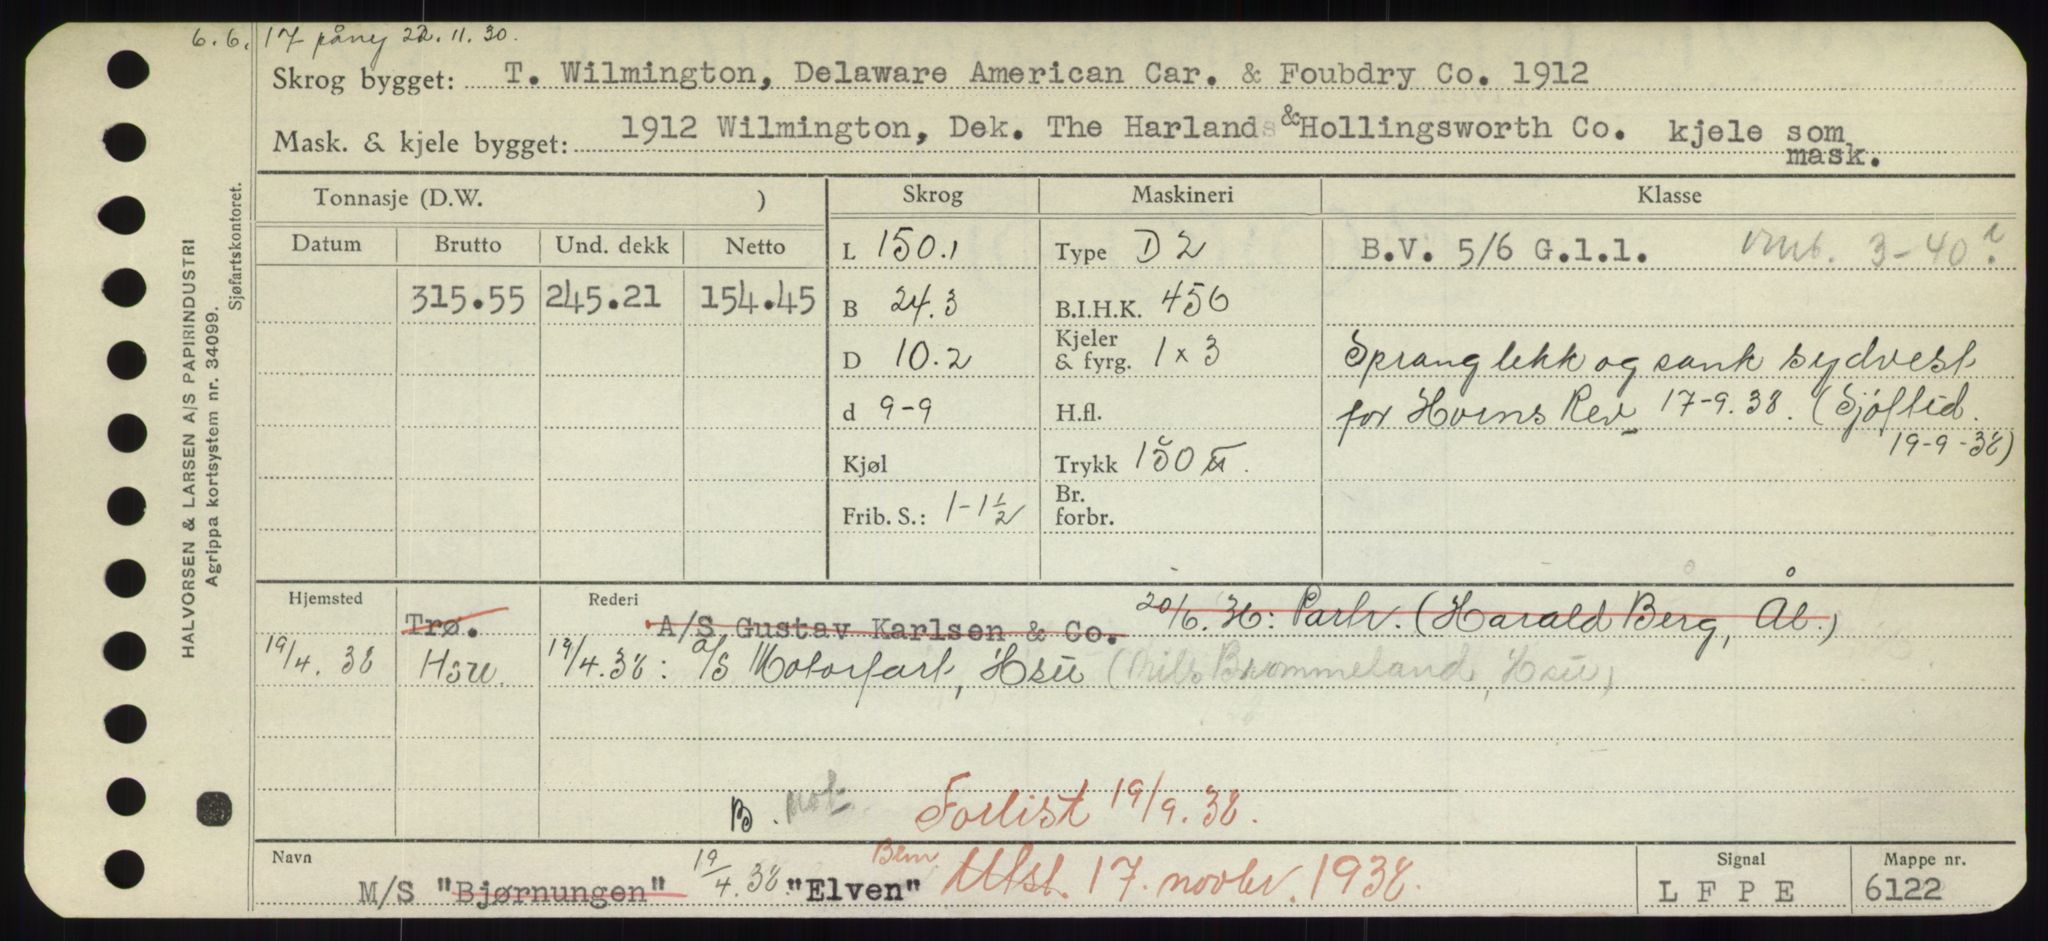 6.6.17 påny 22.11.30.
Skrog bygget: T. Wilmington, Delaware American Car. & Foubdry Co. 1912
Mask. & kjele bygget: 1912 Wilmington, Dek. The Harlands & Hollingsworth Co. kjele som mask.
HALVORSEN & LARSEN A/S PAPIRINDUSTRI
Agrippa kortsystem nr. 34099.
Sjøfartskontoret.
Tonnasje (D.W. ) Skrog Maskineri Klasse
Datum Brutto Und. dekk Netto L 150.1 Type D2 B.V. 5/6 G.1.1. 3-40?
315.55 245.21 154.45 B 24.3 B.I.H.K. 450
D 10.2 Kjeler & fyrg. 1 x 3 Sprang lekk og sank sydvest
d 9-9 H.fl. for Horns Rev 17-9.38. (Sjøftid.
19-9-38)
Kjøl Trykk 150
Frib. S.: 1-1½ Br. forbr.
Hjemsted Trø. Rederi A/S Gustav Karlsen & Co. 20/6. H: Parlv. (Harald Berg, Ål.)
19/4.38 Hsu. 19/4.38: A/S Motorfart, Hsu (Nils Brommeland, Hsu)
B. not. Forlist 19/9.38.
Navn M/S "Bjørnungen" 19/4.38. "Elven" Blm. Utst. 17. novbr. 1938.
Signal L F P E
Mappe nr. 6122